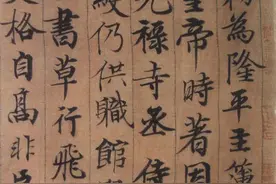 為隆平主簿
皇帝時著因
光祿寺丞侍
仍供職館
書草行飛
格自高非